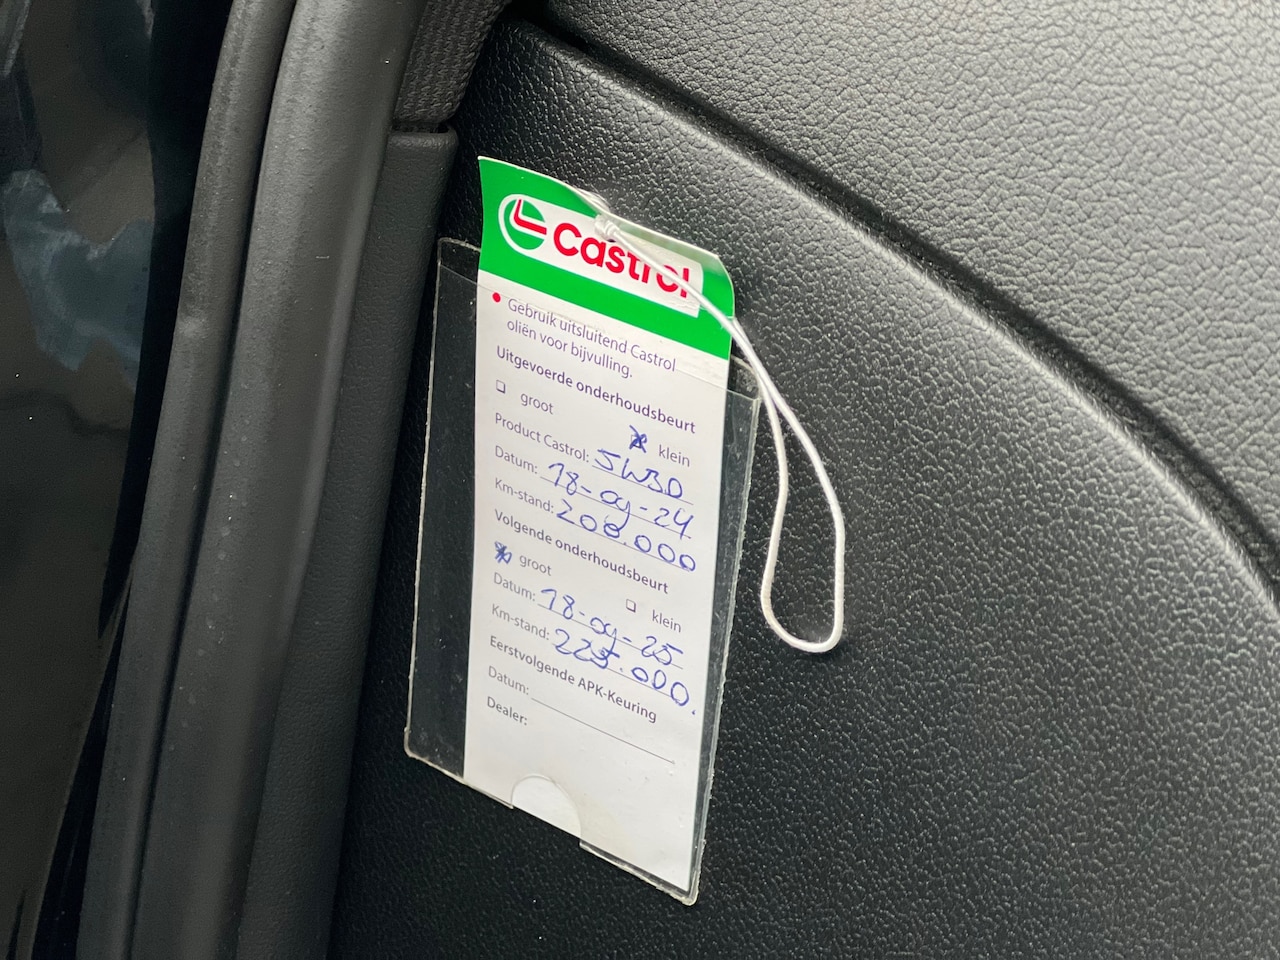 Castrol
Gebruik uitsluitend Castrol
oliën voor bijvulling.
Uitgevoerde onderhoudsbeurt
groot
klein
Product Castrol: 5W30
Datum: 18-09-24
Km-stand: 208.000
Volgende onderhoudsbeurt
groot
klein
Datum: 18-09-25
Km-stand: 225.000.
Eerstvolgende APK-Keuring
Datum:
Dealer: